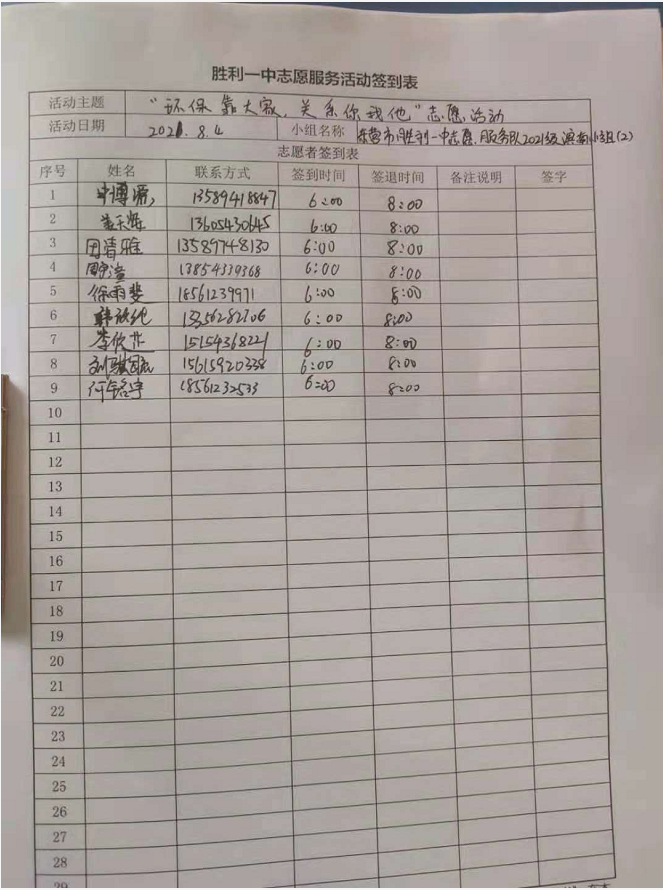 胜利一中志愿服务活动签到表
活动主题 “环保靠大家，关系你我他”志愿活动
活动日期 2021.8.4 小组名称 东营市胜利一中志愿服务队2021级滨南小组(2)
志愿者签到表
序号 姓名 联系方式 签到时间 签退时间 备注说明 签字
1 13589418847 6:00 8:00
2 13605430645 6:00 8:00
3 田清雅 13589748130 6:00 8:00
4 13854339368 6:00 8:00
5 徐雨斐 18561239971 6:00 8:00
6 6:00 8:00
7 李欣 15154368221 6:00 8:00
8 刘 15615920338 6:00 8:00
9 何铭宇 18561232533 6:00 8:00
10
11
12
13
14
15
16
17
18
19
20
21
22
23
24
25
26
27
28
29